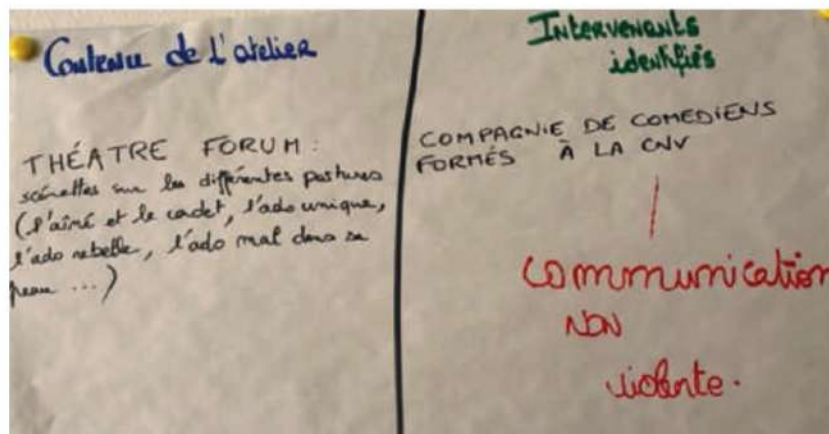 Contenu de l'atelier
THÉATRE FORUM :
scénettes sur les différentes postures
(l'aîné et le cadet, l'ado unique,
l'ado rebelle, l'ado mal dans sa
peau ...)
INTERVENANTS
identifiés
COMPAGNIE DE COMEDIENS
FORMÉS À LA CNV
communication
NON
violente.